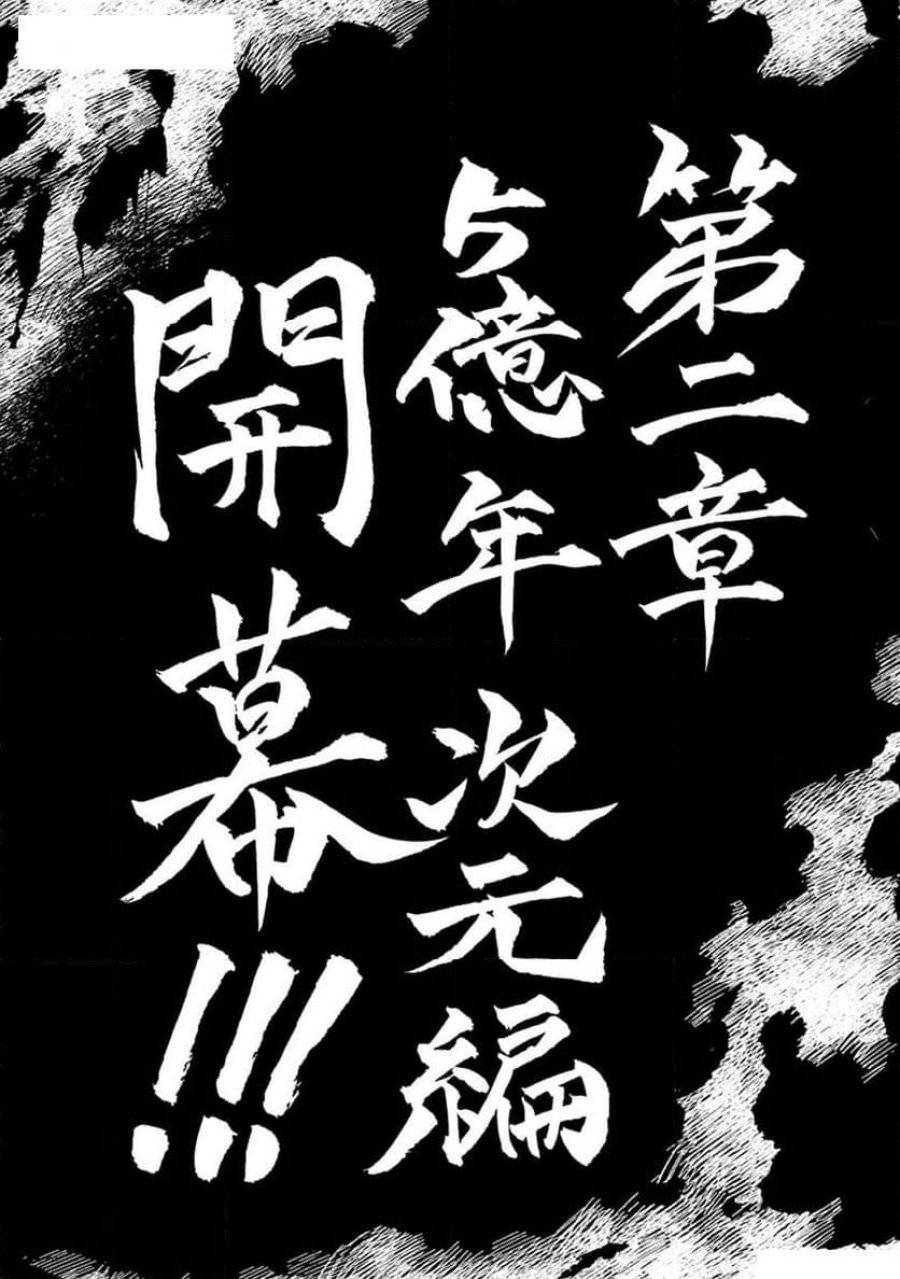 第二章
5億年次元編
開幕!!!